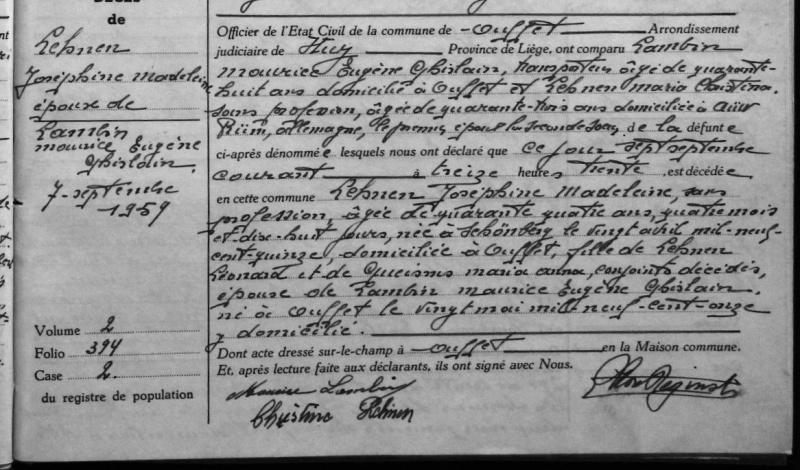 de
Lehnen
Joséphine Madeleine
épouse de
Lambin
Maurice Eugène
Ghislain.
7-septembre
1959
Volume 2
Folio 394
Case 2.
du registre de population
Officier de l'Etat Civil de la commune de - Ouffet Arrondissement
judiciaire de Huy Province de Liège, ont comparu Lambin
Maurice Eugène Ghislain, transporteur âgé de quarante-
huit ans domicilié à Ouffet et Lehnen Maria Christina.
sans profession, âgée de quarante-trois ans domiciliée à
Allemagne, le premier époux la seconde soeur de la défunte
ci-après dénommée lesquels nous ont déclaré que ce jour sept septembre
courant à treize heures trente, est décédée
en cette commune Lehnen Joséphine Madeleine, sans
profession, âgée de quarante quatre ans, quatre mois
et-dix-huit jours, née à Schönberg le vingt avril mil-neuf-
cent-quinze, domiciliée à Ouffet, fille de Lehnen
Léonard et de Maria Anna, conjoints décédés,
épouse de Lambin Maurice Eugène Ghislain,
né à Ouffet le vingt mai mil neuf-cent-onze
y domicilié.
Dont acte dressé sur-le-champ à - Ouffet en la Maison commune.
Et, après lecture faite aux déclarants, ils ont signé avec Nous.
Maurice Lambin
Christine Lehnen